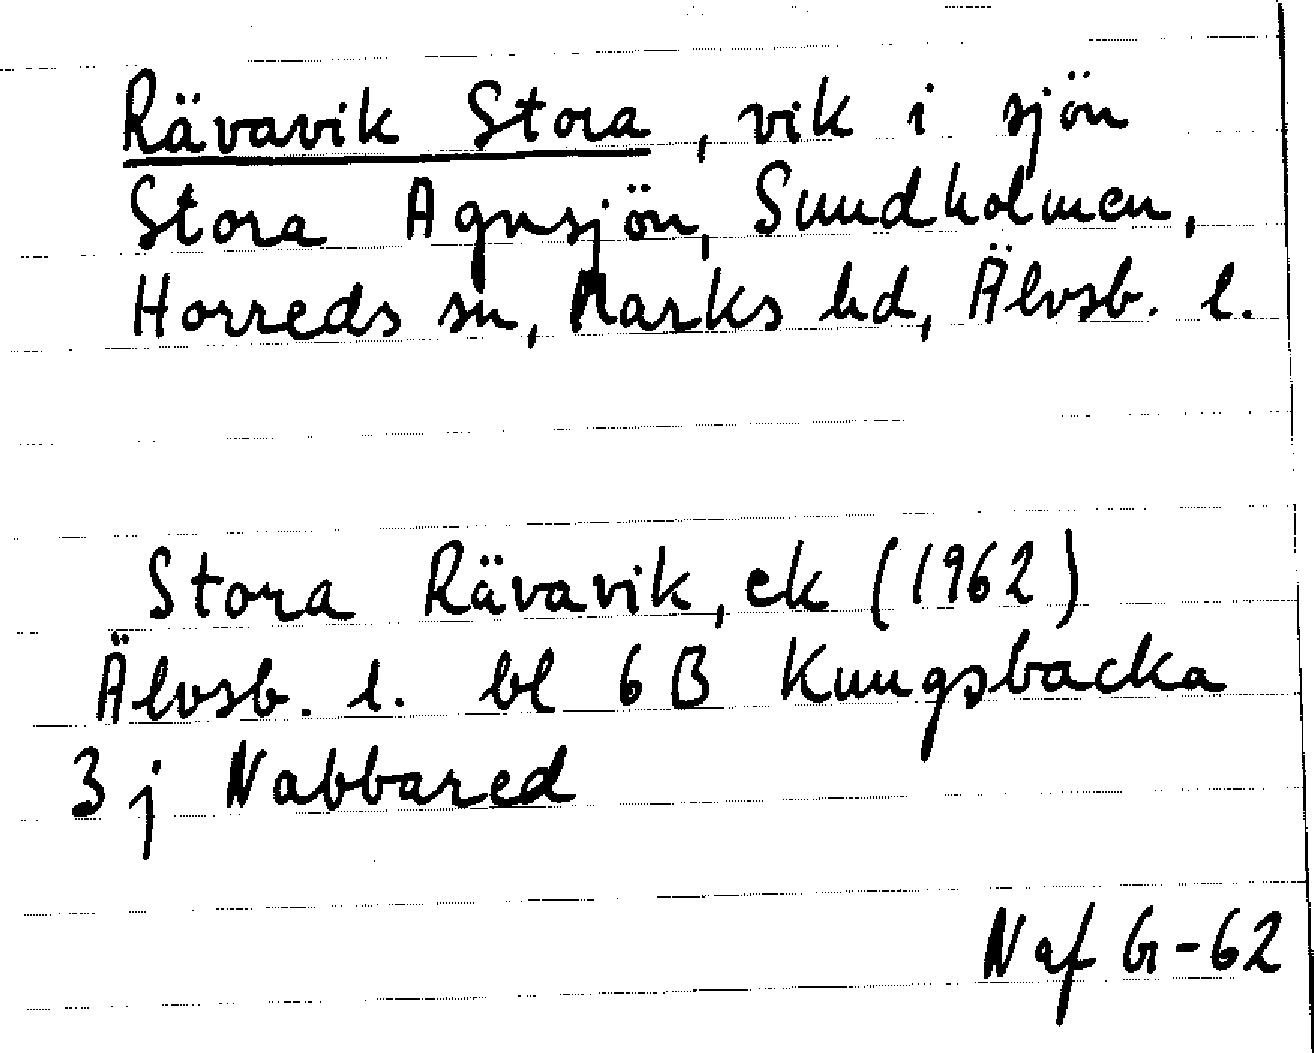 Rävavik Stora, vik i sjön
Stora Agnsjön, Sundholmen,
Horreds sn, Marks hd, Älvsb. l.
Stora Rävavik, ek (1962)
Älvsb. l. bl 6 B Kungsbacka
3 j Nabbared
Naf G-62